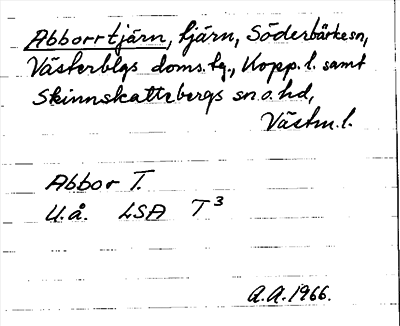 Abborrtjärn, tjärn, Söderbärke sn,
Västerbgs doms. tg., Kopp. l. samt
Skinnskattebergs sn. o. hd,
Västm. l.
Abbor T.
U.å. LSA T3
A.A. 1966.